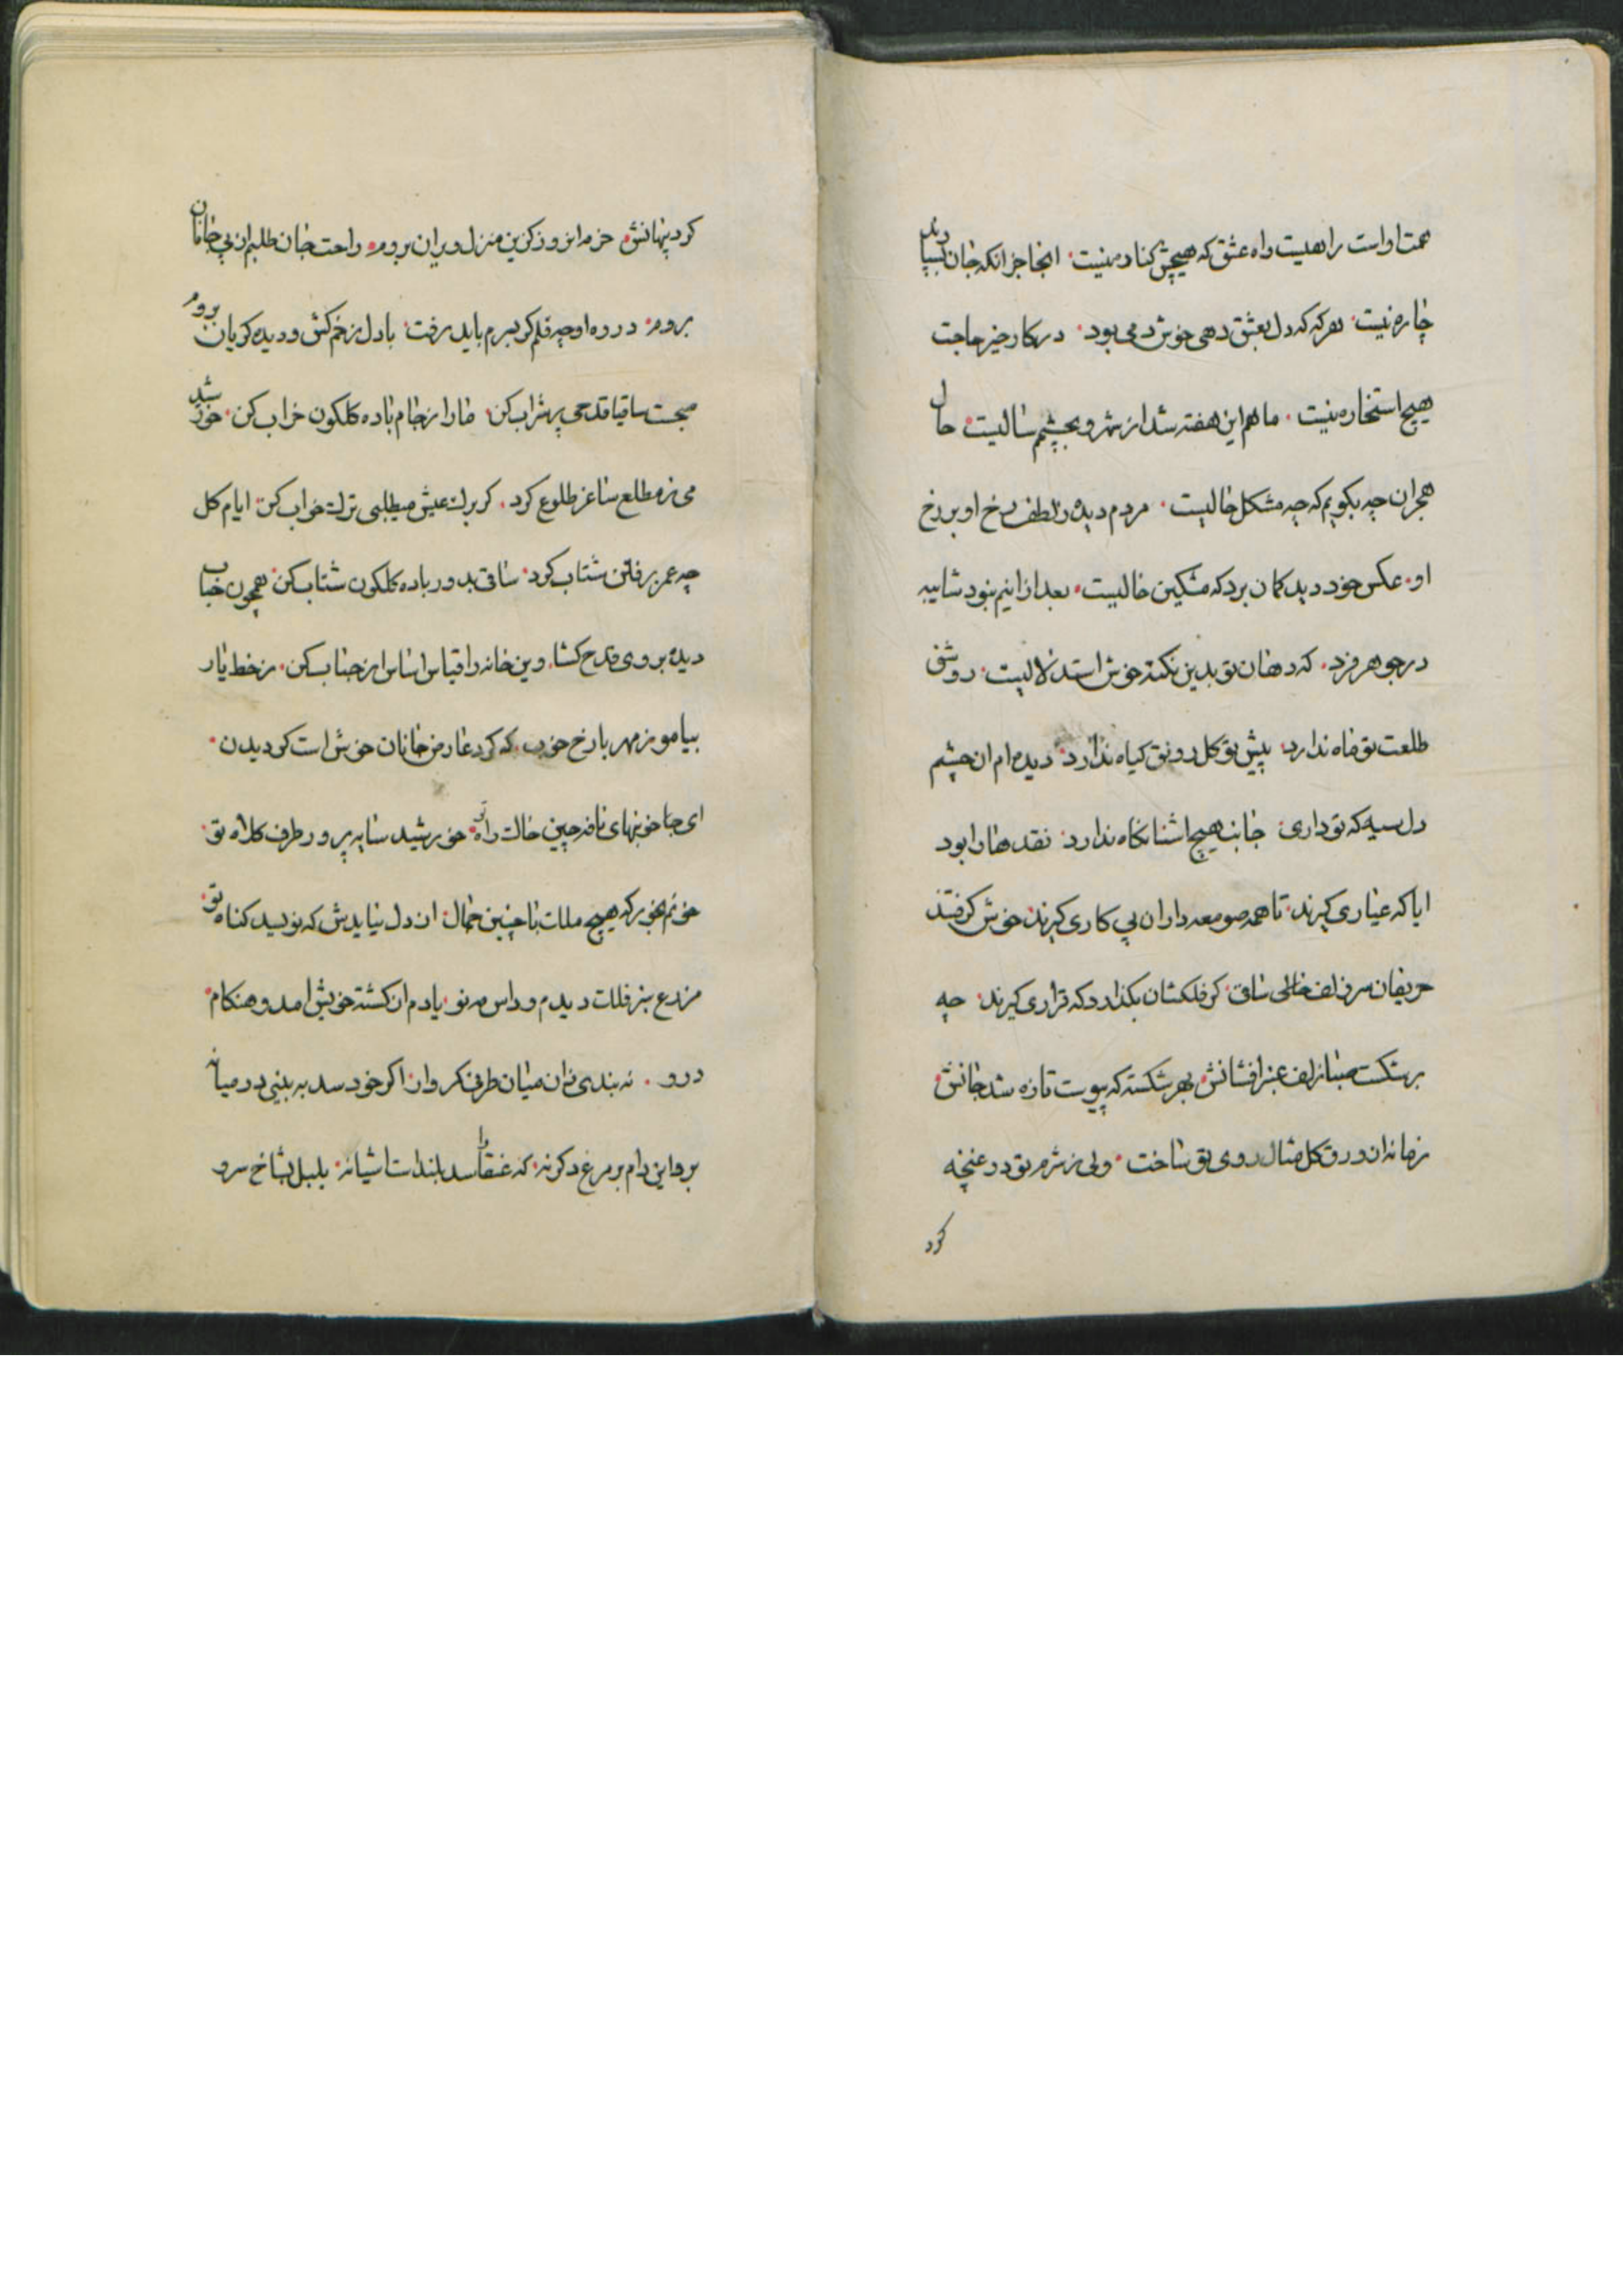 همت اواست راهیست راه عشق که هیچش کناره نیست انجا جز انکه جان بسپارند
چاره نیست هرکه که دل بعشق دهی خوش دمی بود درکار خیر حاجت
هیچ استخاره نیست ماهم این هفته شد از شهر و بچشمم سالیست حال
هجران چه بکویم که چه مشکل حالیست مردم دیده ز لطف رخ او بر رخ
او عکس خود دید کمان برد که مشکین خالیست بعد ازاینم نبود شایبه
در جوهر فرد که دهان تو بدین نکته خوش استدلالیست روشنی
طلعت تو ماه ندارد پیش تو کل رونق کیاه ندارد دیده ام ان چشم
دل سیه که تو داری جانب هیچ اشنا نکاه ندارد نقدها را بود
ایا که عیاری کیرند تا همه صومعه داران پی کاری کیرند خوش کرفتند
حریفان سر زلف ساقی کر فلکشان بکذارد که قراری کیرند چه
برشکست صبا زلف عنبرافشانش بهر شکسته که پیوست تازه شد جانش
زمانه از ورق کل مثال روی تو ساخت ولی ز شرم تو در غنچه
کرد
کرد پنهانش خرم انروز کزین منزل ویران بروم راحت جان طلبم از پی جانان
بروم در ره او چه قلم کر بسرم باید رفت با دل زخم کش و دیده کریان بروم
صبحست ساقیا قدحی پر شراب کن مارا ز جام باده کلکون خراب کن خورشید
می ز مطلع ساغر طلوع کرد کر برک عیش میطلبی ترک خواب کن ایام کل
چه عمر برفتن شتاب کرد ساقی بدور باده کلکون شتاب کن همچون حباب
دیده بروی قدح کشا وین خانه را قیاس اساس از حباب کن ز خط یار
بیاموز مهر با رخ خوب که کرد عارض جانان خوش است کردیدن
ای خونبهای نافه چین خاک راه تو خورشید سایه پرور طرف کلاه تو
خونم بخور که هیچ ملک با چنین جمال از دل نیایدش که نویسد کناه تو
مزرع سبز فلک دیدم و داس مه نو یادم از کشته خویش امد و هنکام
درو نه بندی زان میان طرفی کمروار اکر خود سد به بینی در میانه
برو این دام بر مرغ دکر نه که عنقا را سد بلندست اشیانه بلبل بشاخ سرو